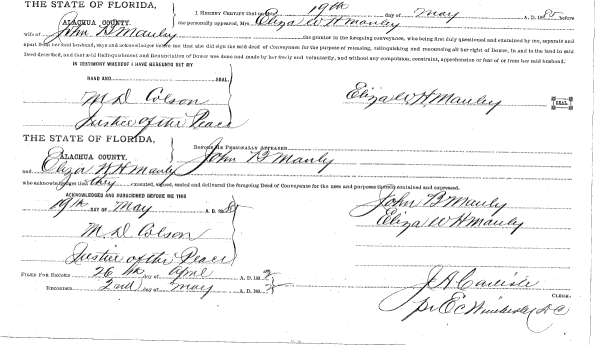 THE STATE OF FLORIDA,
ALACHUA COUNTY.
I HEREBY CERTIFY that on this 19th day of May A. D. 18 before
me personally appeared, Mrs. Eliza W H Manly
wife of John B Manly the grantor in the foregoing conveyance, who being first duly questioned and examined by me, separate and
apart from her said husband, says and acknowledges before me that she did sign the said deed of Conveyance for the purpose of releasing, relinquishing and renouncing all her right of Dower, in and to the land in said
Deed described, and that said Relinquishment and Renunciation of Dower was done and made by her freely and voluntarily, and without any compulsion, constraint, apprehension or fear of or from her said husband.
IN TESTIMONY WHEREOF I HAVE HEREUNTO SET MY
HAND AND SEAL.
M. D Colson
Justice of the Peace
Eliza W. H. Manly SEAL.
THE STATE OF FLORIDA,
ALACHUA COUNTY.
PERSONALLY APPEARED John B Manly
and Eliza W H Manly
who acknowledges that they executed, signed, sealed and delivered the foregoing Deed of Conveyance for the uses and purposes therein contained and expressed.
ACKNOWLEDGED AND SUBSCRIBED BEFORE ME THIS
19th DAY OF May A. D. 18
John B Manly
Eliza W H Manly
M. D Colson
Justice of the Peace
FILED FOR RECORD 26 th day of April A. D. 1892
RECORDED 2nd day of May A. D. 1892
J A Carlisle CLERK.
pr E C Wimberly D C